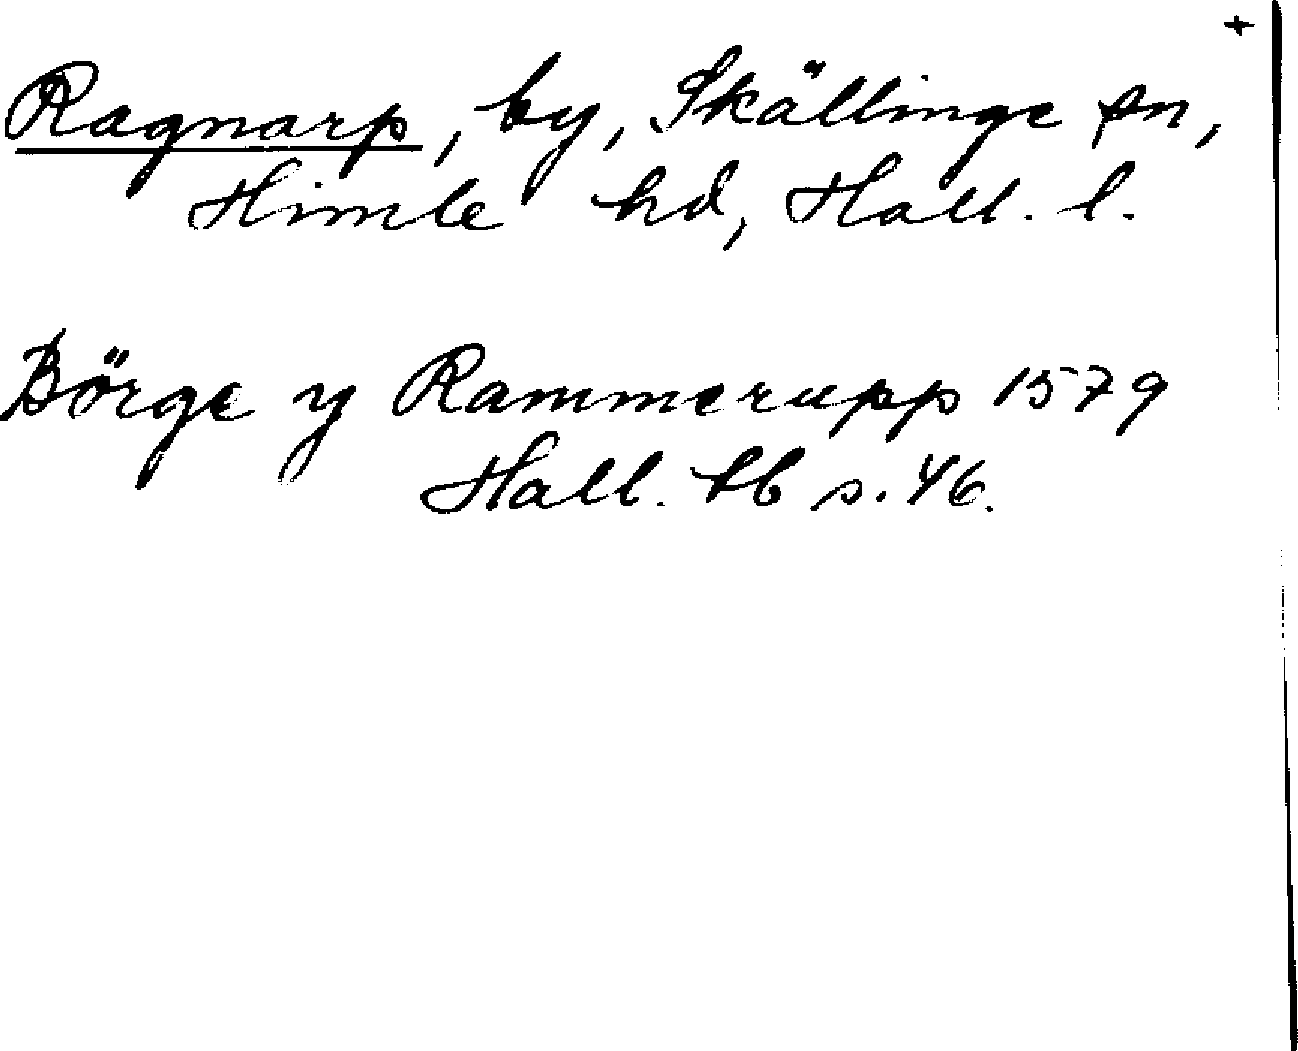 +
Ragnarp, by, Skällinge sn,
Himle hd, Hall. l.
Börge y Rammerupp 1579
Hall. bb s. 46.